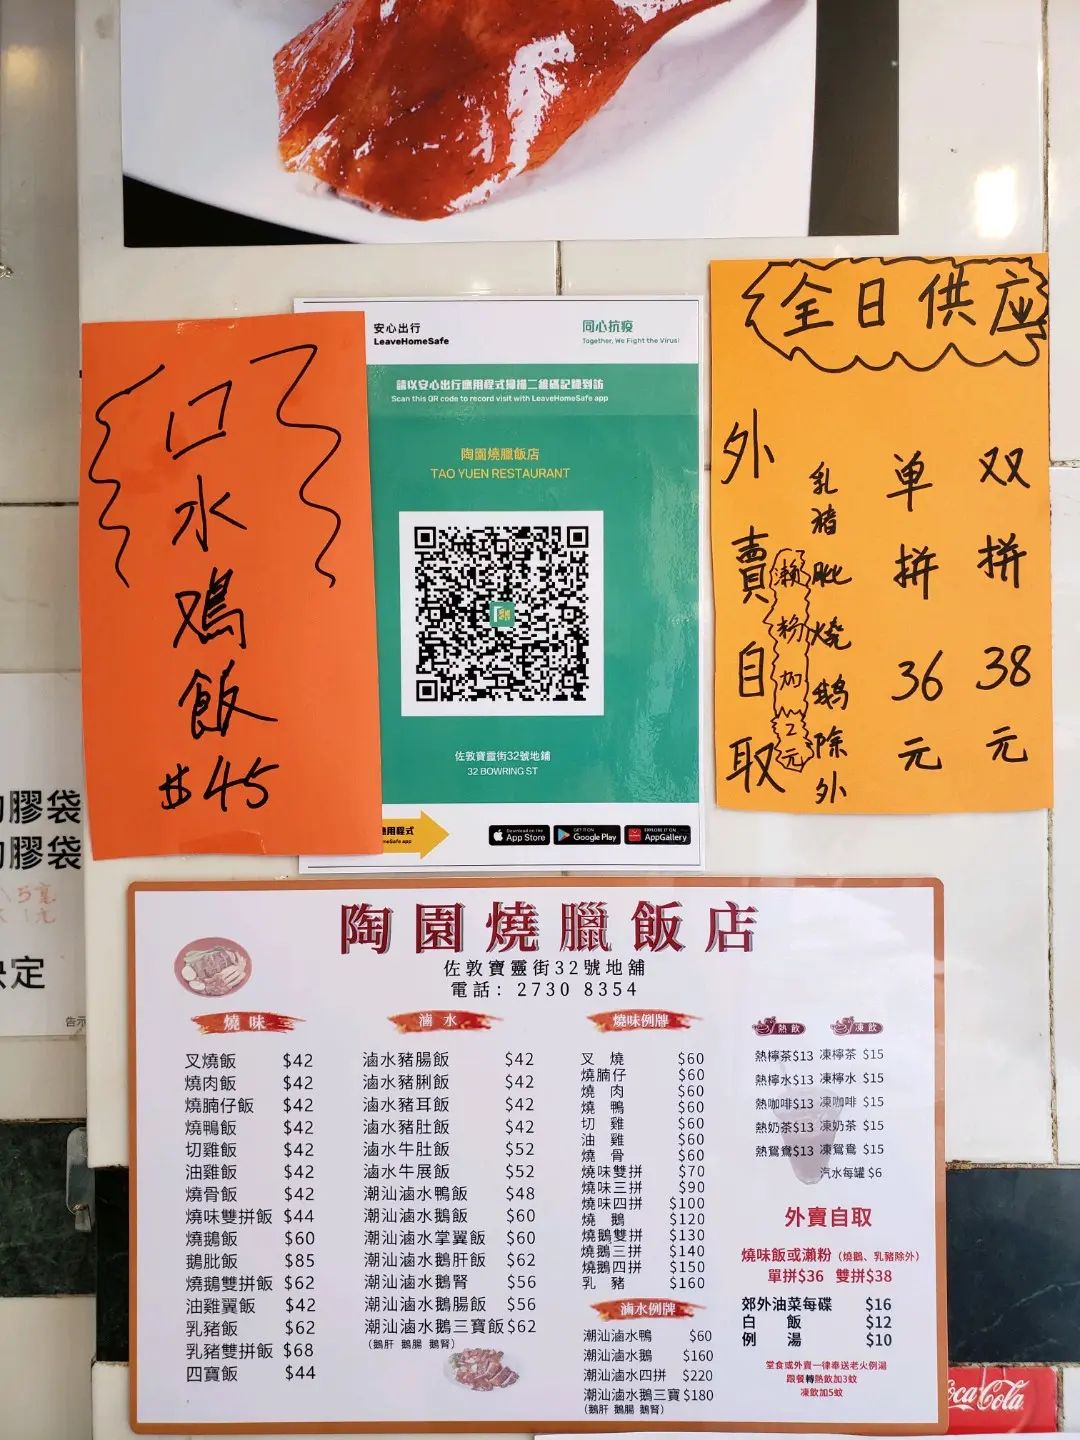 口水鳮飯
$45
安心出行
LeaveHomeSafe
同心抗疫
Together, We Fight the Virus!
請以安心出行應用程式掃描二維碼記錄到訪
Scan this QR code to record visit with LeaveHomeSafe app
陶園燒臘飯店
TAO YUEN RESTAURANT
佐敦寶靈街32號地鋪
32 BOWRING ST
應用程式
Download on the App Store
GET IT ON Google Play
EXPLORE IT ON AppGallery
全日供应
外賣自取
瀨粉加2元
乳猪肶燒鵝除外
单拼36元
双拼38元
膠袋
膠袋
決定
告示
陶園燒臘飯店
佐敦寶靈街32號地舖
電話：2730 8354
燒味
叉燒飯 $42
燒肉飯 $42
燒腩仔飯 $42
燒鴨飯 $42
切雞飯 $42
油雞飯 $42
燒骨飯 $42
燒味雙拼飯 $44
燒鵝飯 $60
鵝肶飯 $85
燒鵝雙拼飯 $62
油雞翼飯 $42
乳豬飯 $62
乳豬雙拼飯 $68
四寶飯 $44
滷水
滷水豬腸飯 $42
滷水豬脷飯 $42
滷水豬耳飯 $42
滷水豬肚飯 $42
滷水牛肚飯 $52
滷水牛展飯 $52
潮汕滷水鴨飯 $48
潮汕滷水鵝飯 $60
潮汕滷水掌翼飯 $60
潮汕滷水鵝肝飯 $62
潮汕滷水鵝腎 $56
潮汕滷水鵝腸飯 $56
潮汕滷水鵝三寶飯 $62
(鵝肝 鵝腸 鵝腎)
燒味例牌
叉燒 $60
燒腩仔 $60
燒肉 $60
燒鴨 $60
切雞 $60
油雞 $60
燒骨 $60
燒味雙拼 $70
燒味三拼 $90
燒味四拼 $100
燒鵝 $120
燒鵝雙拼 $130
燒鵝三拼 $140
燒鵝四拼 $150
乳豬 $160
滷水例牌
潮汕滷水鴨 $60
潮汕滷水鵝 $160
潮汕滷水四拼 $220
潮汕滷水鵝三寶 $180
(鵝肝 鵝腸 鵝腎)
熱飲 凍飲
熱檸茶$13 凍檸茶 $15
熱檸水$13 凍檸水 $15
熱咖啡$13 凍咖啡 $15
熱奶茶$13 凍奶茶 $15
熱鴛鴦$13 凍鴛鴦 $15
汽水每罐 $6
外賣自取
燒味飯或瀨粉（燒鵝、乳豬除外）
單拼$36 雙拼$38
郊外油菜每碟 $16
白飯 $12
例湯 $10
堂食或外賣一律奉送老火例湯
跟餐轉熱飲加3蚊
凍飲加5蚊
Coca-Cola